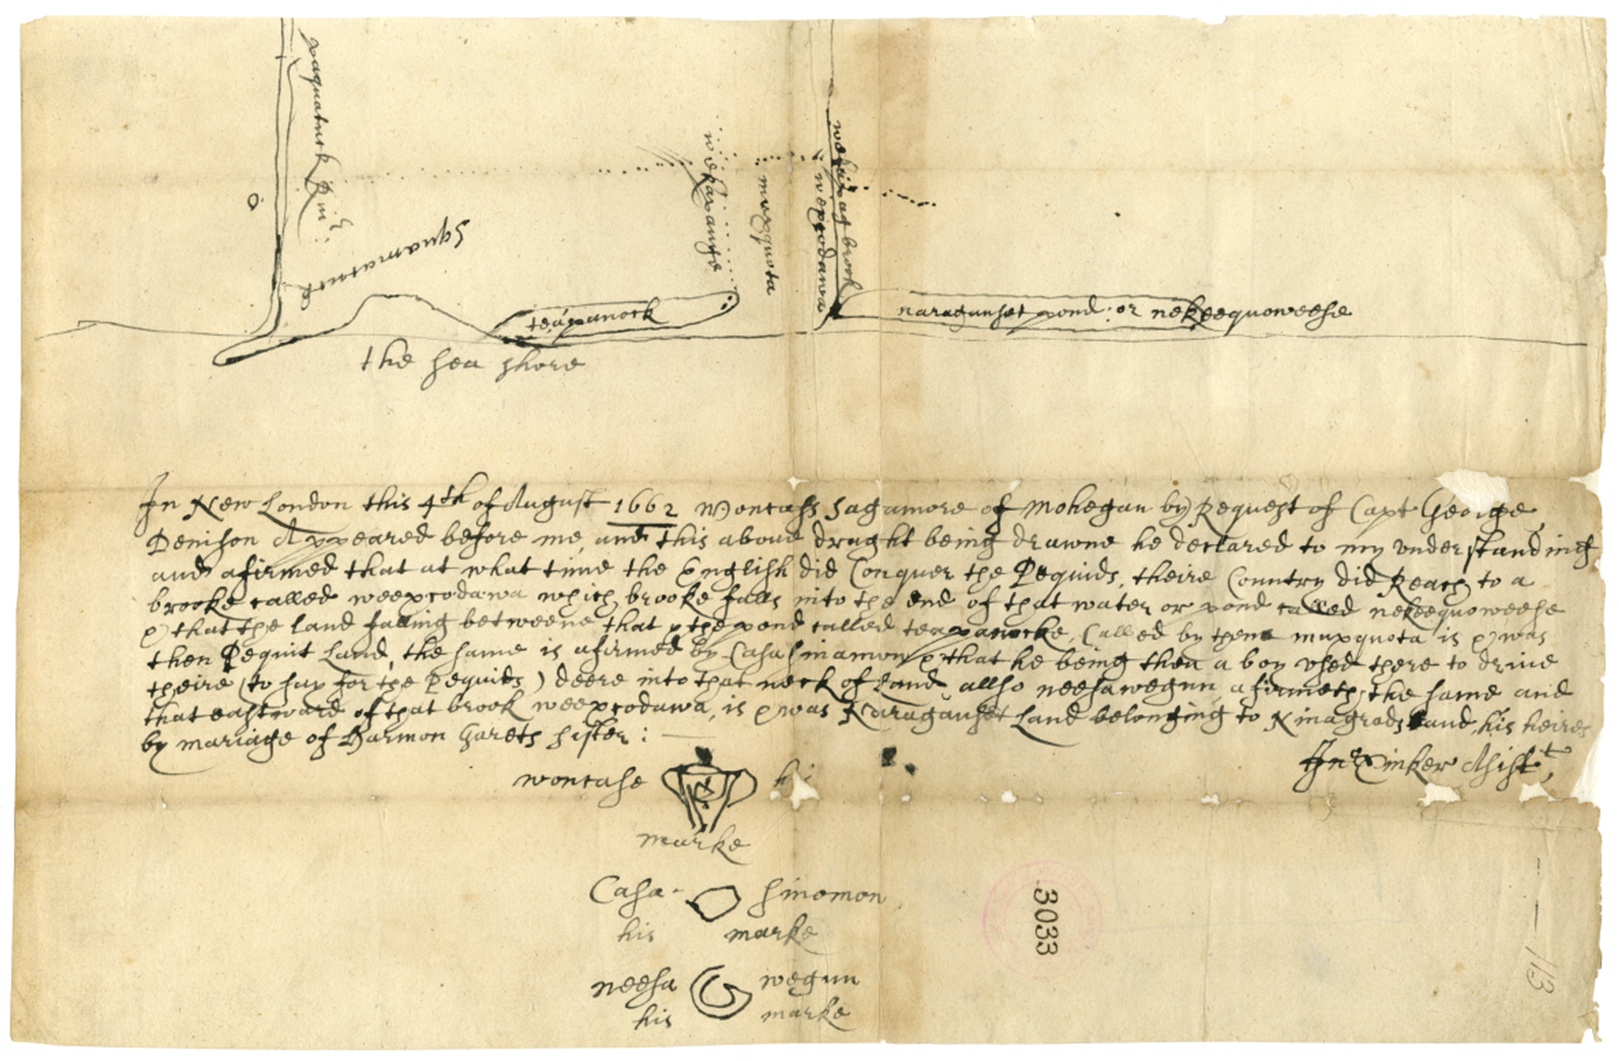 paquatuck River:
Squamatuck
teapanock
wekapauge
muxquota
weexcodawa
wekapag brook
naragunset pond: or nekeequoweese
the sea shore
In New London this 4th of August 1662 Woncass Sagamore of Mohegan by Request of Capt George
Denison Appeared before me, and this above draght being drawne he declared to my vnderstanding
and afirmed that at what time the English did Conquer the Pequids, theire Country did Reach to a
brooke called weexcodawa which brooke falls into the end of that water or pond called nekeequoweese
& that the land falling betweene that & the pond called teapanocke, Called by them muxquota is & was
then Pequit Land, the same is afirmed by Casasinamon & that he being then a boy vsed there to drive
theire (to say for the Pequids) deere into that neck of Land, allso neesawegun, afirmeth the same and
that eastward of that brook weexcodawa, is & was Naraganset Land belonging to Ninagrads and his heires
by mariage of Harmon Garets sister:
Jno Tinker Assistt,
woncase his
marke
Casa- sinomon
his marke
neesa wegun
his marke
3033
113